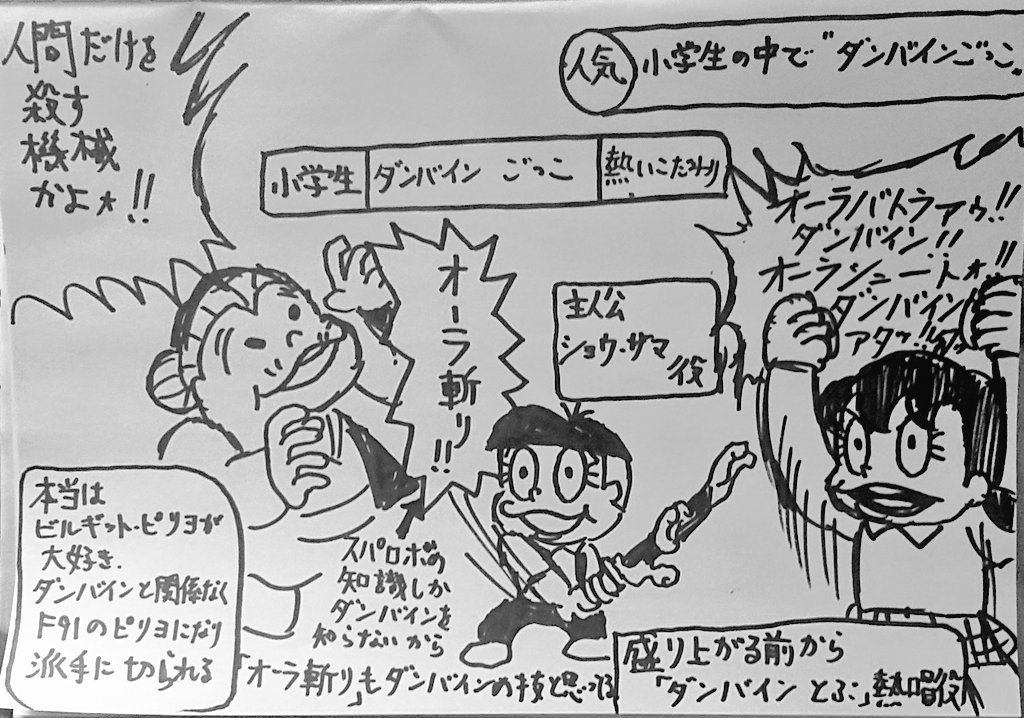 人気 小学生の中で"ダンバインごっこ"
小学生 ダンバイン ごっこ 熱いこだわり
人間だけを
殺す
機械
かよォ!!
オーラバトラァゥ!!
ダンバイン!!
オーラシュートォ!!
ダンバイン
アタッ!!
オーラ斬り!!
主人公
ショウ・ザマ
役
本当は
ビルギット・ピリヨが
大好き.
ダンバインと関係なく
F91のピリヨになり
派手に切られる
スパロボの
知識しか
ダンバインを
知らないから
「オーラ斬り」もダンバインの技と思ってる
盛り上がる前から
「ダンバイン とぶ」熱唱役